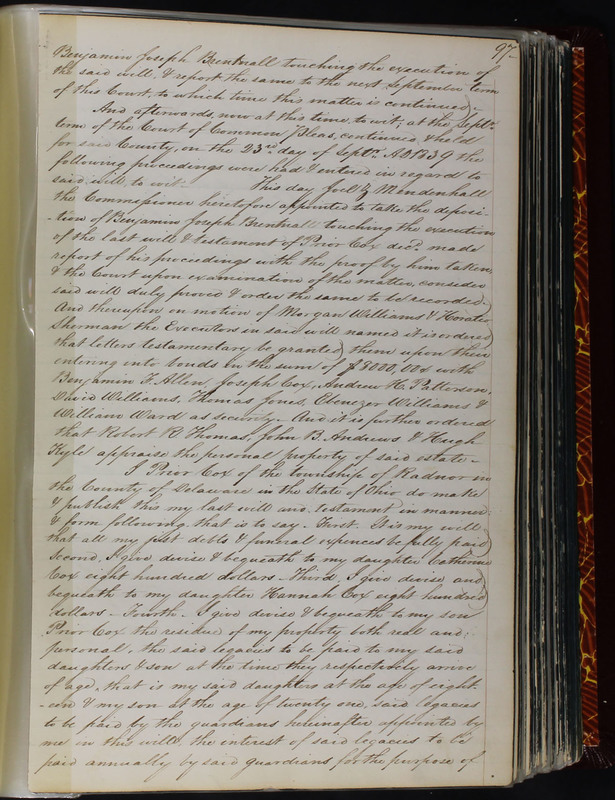 97
Benjamin Joseph Brentnall touching the execution of
the said will, & report the same to the next September term
of this Court, to which time this matter is continued,
And afterwards, now at this time, to wit; at the Septr
term of the Court of Common Pleas, continued & held
for said County, on the 23rd day of Septr. AD 1839 the
following proceedings were had & entered in regard to
said will, to wit. This day Joell Z Mendenhall
the Commissioner heretofore appointed to take the deposi-
-tion of Benjamin Joseph Brentnall touching the execution
of the last will & testament of Prior Cox decd. made
report of his proceedings with the proof by him taken,
& the Court upon examination of the matter, consider
said will duly proved & order the same to be recorded.
And thereupon on motion of Morgan Williams & Horatio
Sherman the Executors in said will named it is ordered
that letters testamentary be granted them upon their
entering into bonds in the sum of $8000,00 with
Benjamin F. Allen, Joseph Cox, Andrew H. Patterson,
David Williams, Thomas Jones, Ebenezer Williams &
William Ward as security - And it is further ordered
that Robert R Thomas, John B. Andrews & Hugh
Kyle appraise the personal property of said estate -
I Prior Cox of the township of Radnor in
the County of Delaware in the State of Ohio do make
& publish this my last will and testament in manner
& form following, that is to say - First. It is my will
that all my just debts & funeral expences be fully paid
Second, I give devise & bequeath to my daughter Catherine
Cox eight hundred dollars - Third, I give devise and
bequeath to my daughter Hannah Cox eight hundred
dollars - Fourth - I give devise & bequeath to my son
Prior Cox the residue of my property both real and
personal, the said legacies to be paid to my said
daughters & son at the time they respectively arrive
of age, that is my said daughters at the age of eight-
-een & my son at the age of twenty one, said legacies
to be paid by the guardians hereinafter appointed by
me in this will, the interest of said legacies to be
paid annually by said guardians for the purpose of